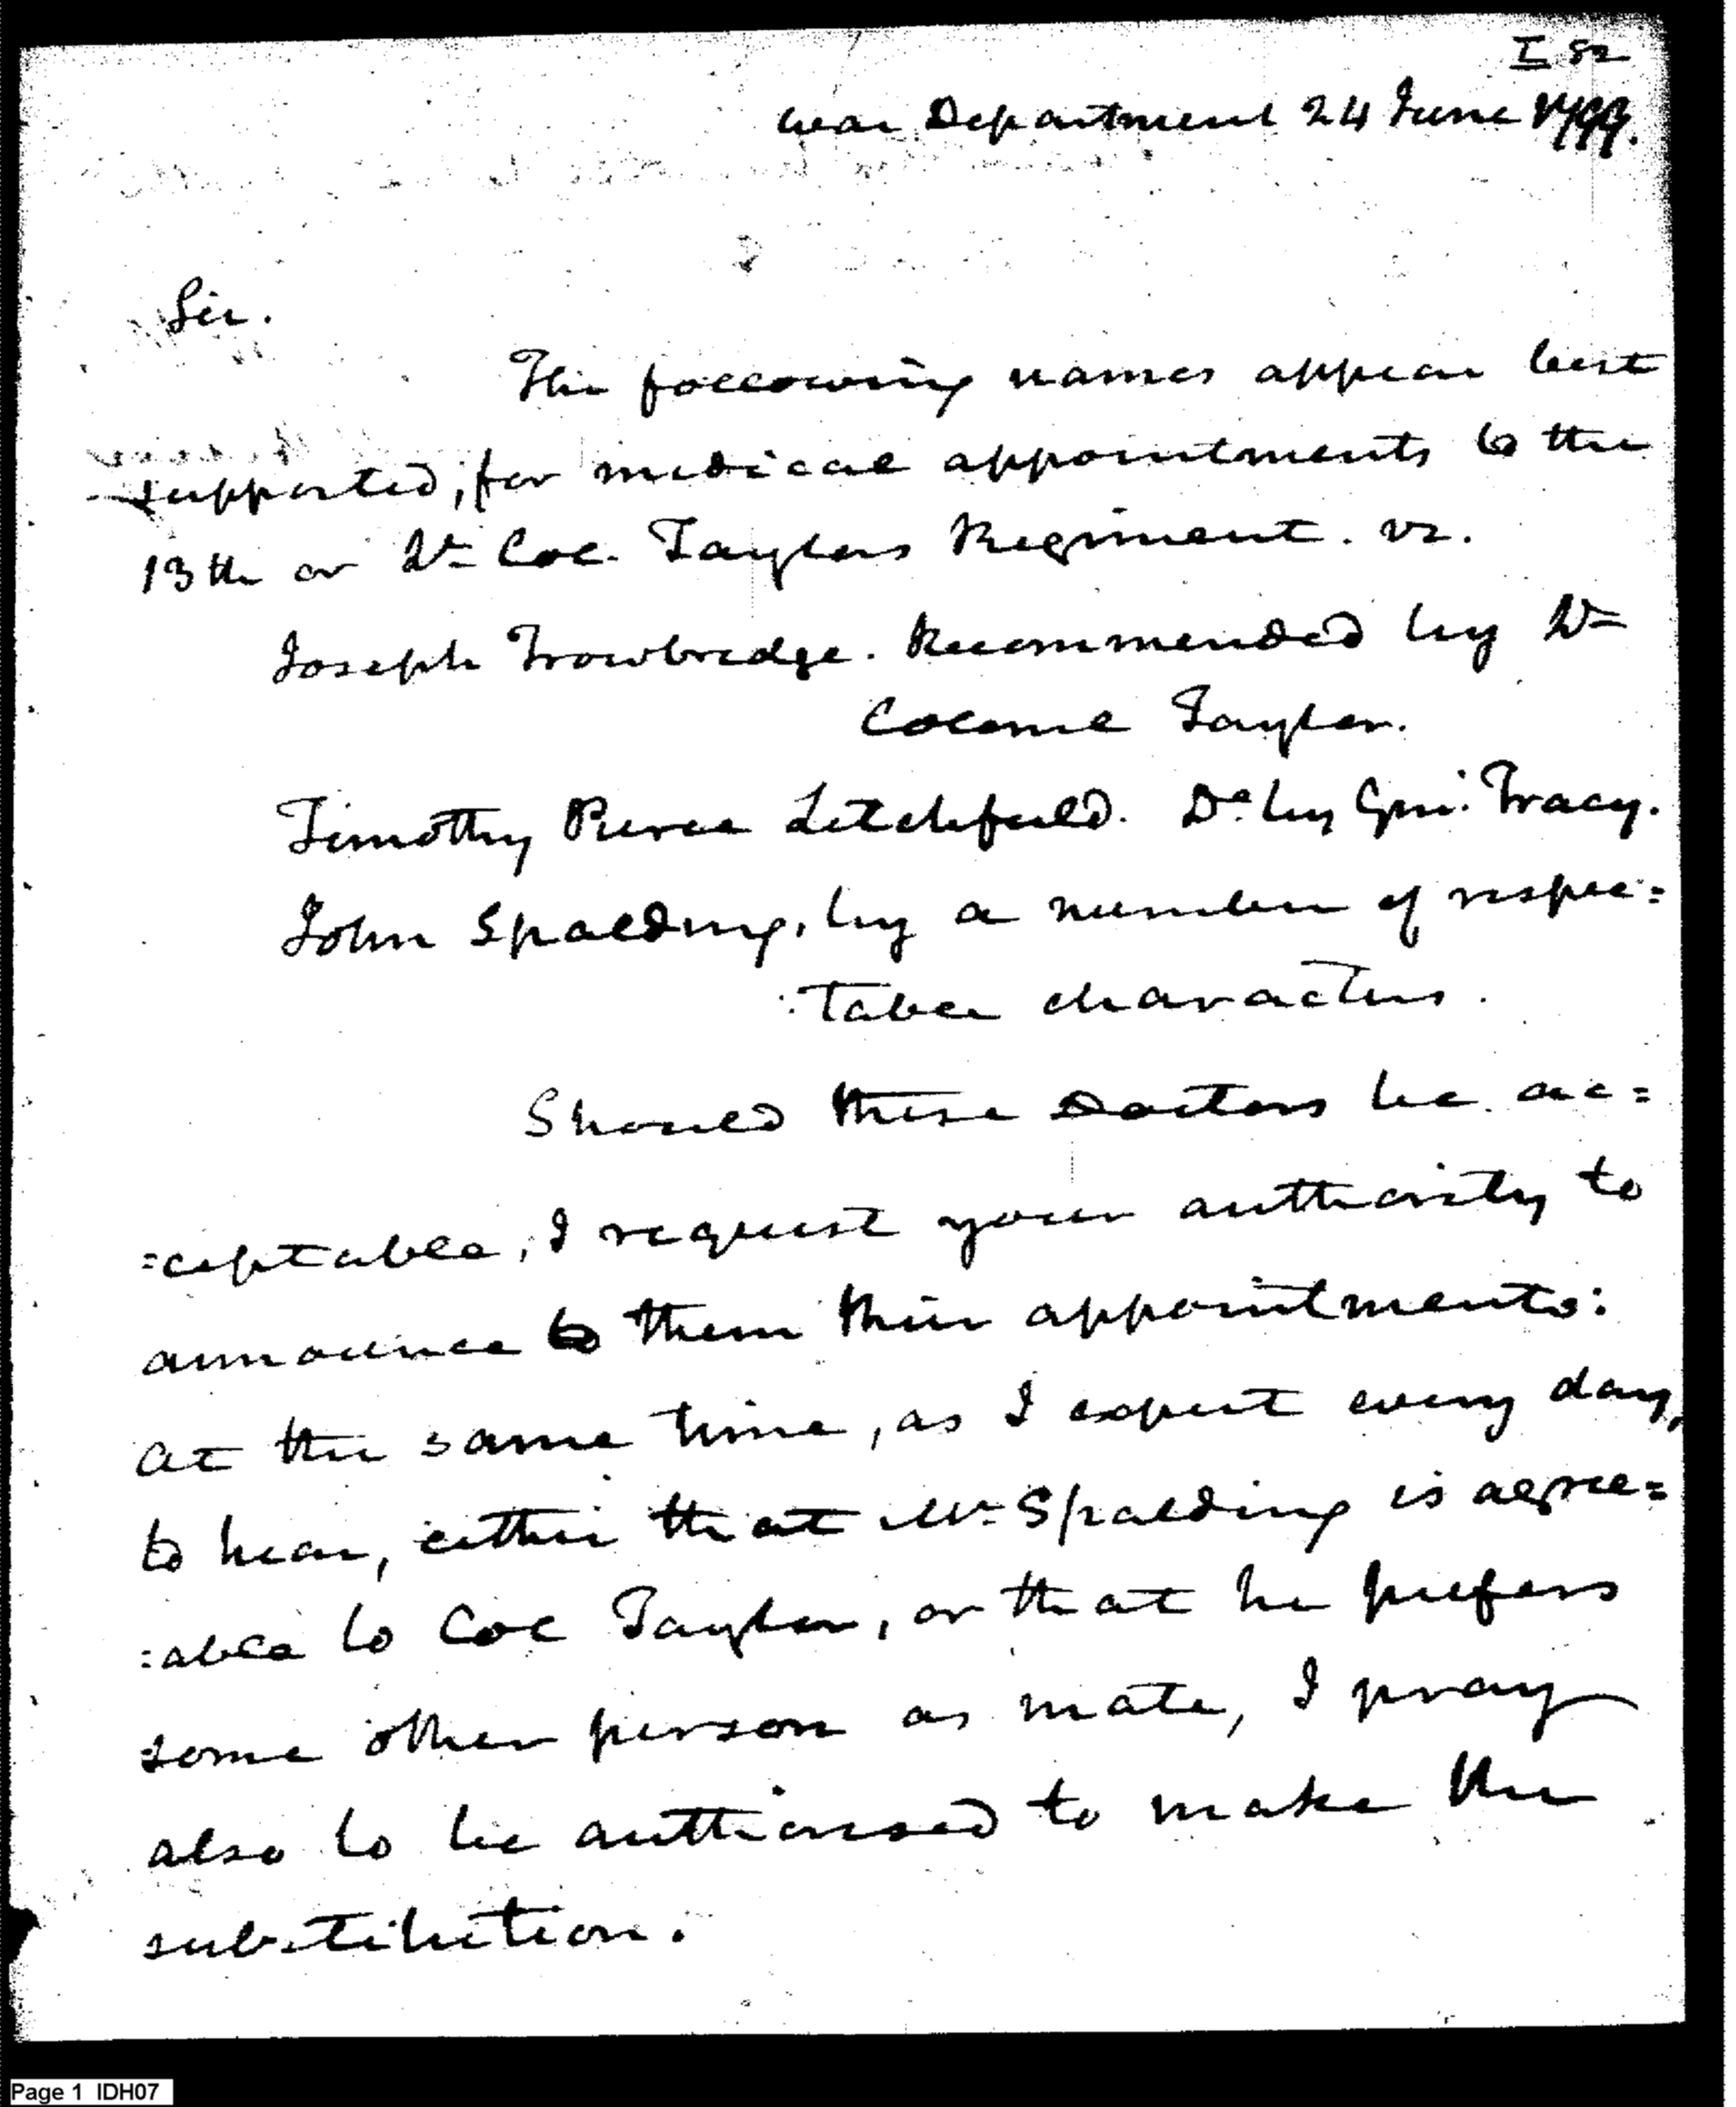 I 82
War Department 24 June 1799.
Sir.
The following names appear best
supported, for medical appointments to the
13th or Lt Col. Taylors Regiment. vz.
Joseph Trowbridge. Recommended by Lt
Colonel Taylor.
Timothy Pierce Litchfield. Do by Genl. Tracy.
John Spalding, by a number of respec=
:table characters.
Should these Doctors be ac=
=ceptable, I request your authority to
announce to them their appointments:
at the same time, as I expect every day,
to hear, either that Mr Spalding is agree=
:able to Col Taylor, or that he prefers
some other person as mate, I pray
also to be authorised to make the
substitution.
Page 1 IDH07